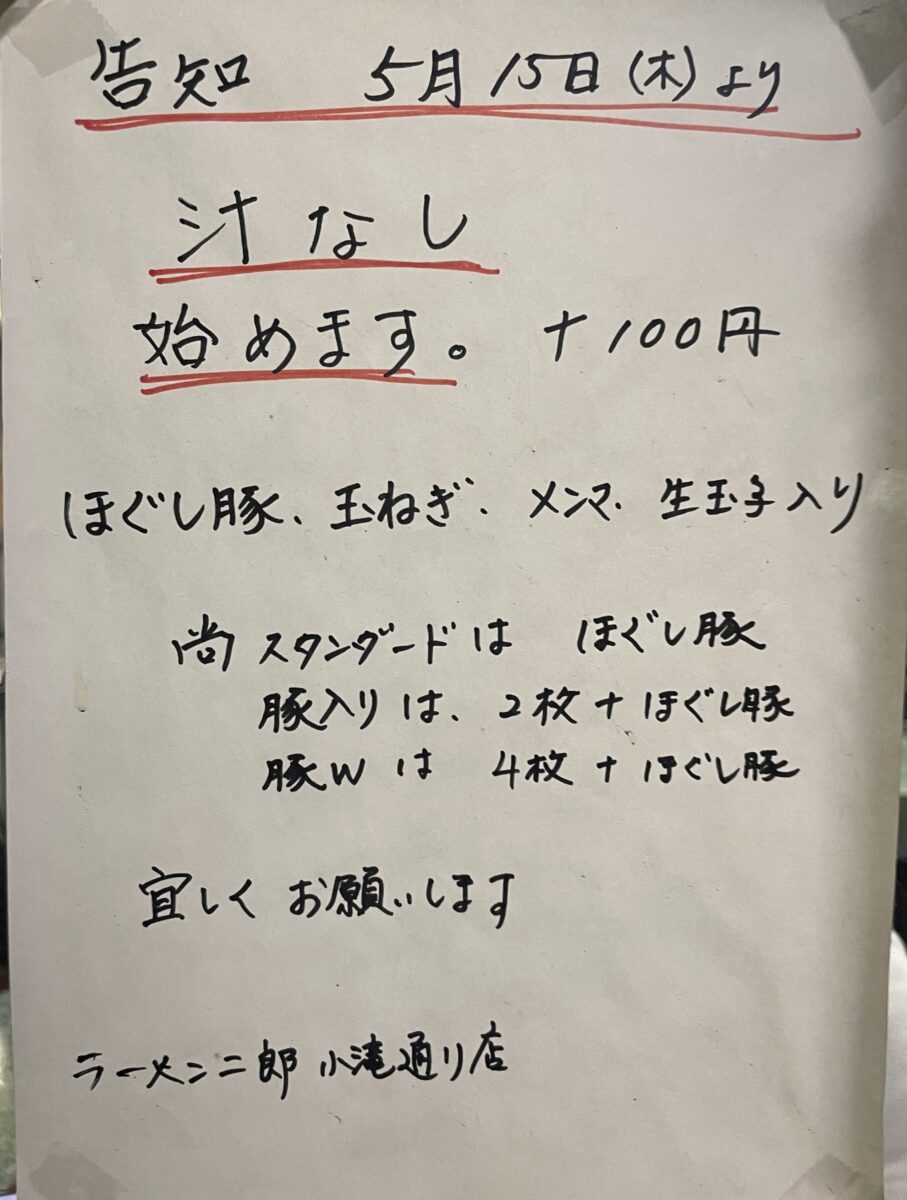 告知 5月15日(木)より
汁なし
始めます。 +100円
ほぐし豚、玉ねぎ、メンマ、生玉子入り
尚 スタンダードは ほぐし豚
豚入りは、2枚+ほぐし豚
豚Wは 4枚+ほぐし豚
宜しくお願いします
ラーメン二郎 小滝通り店